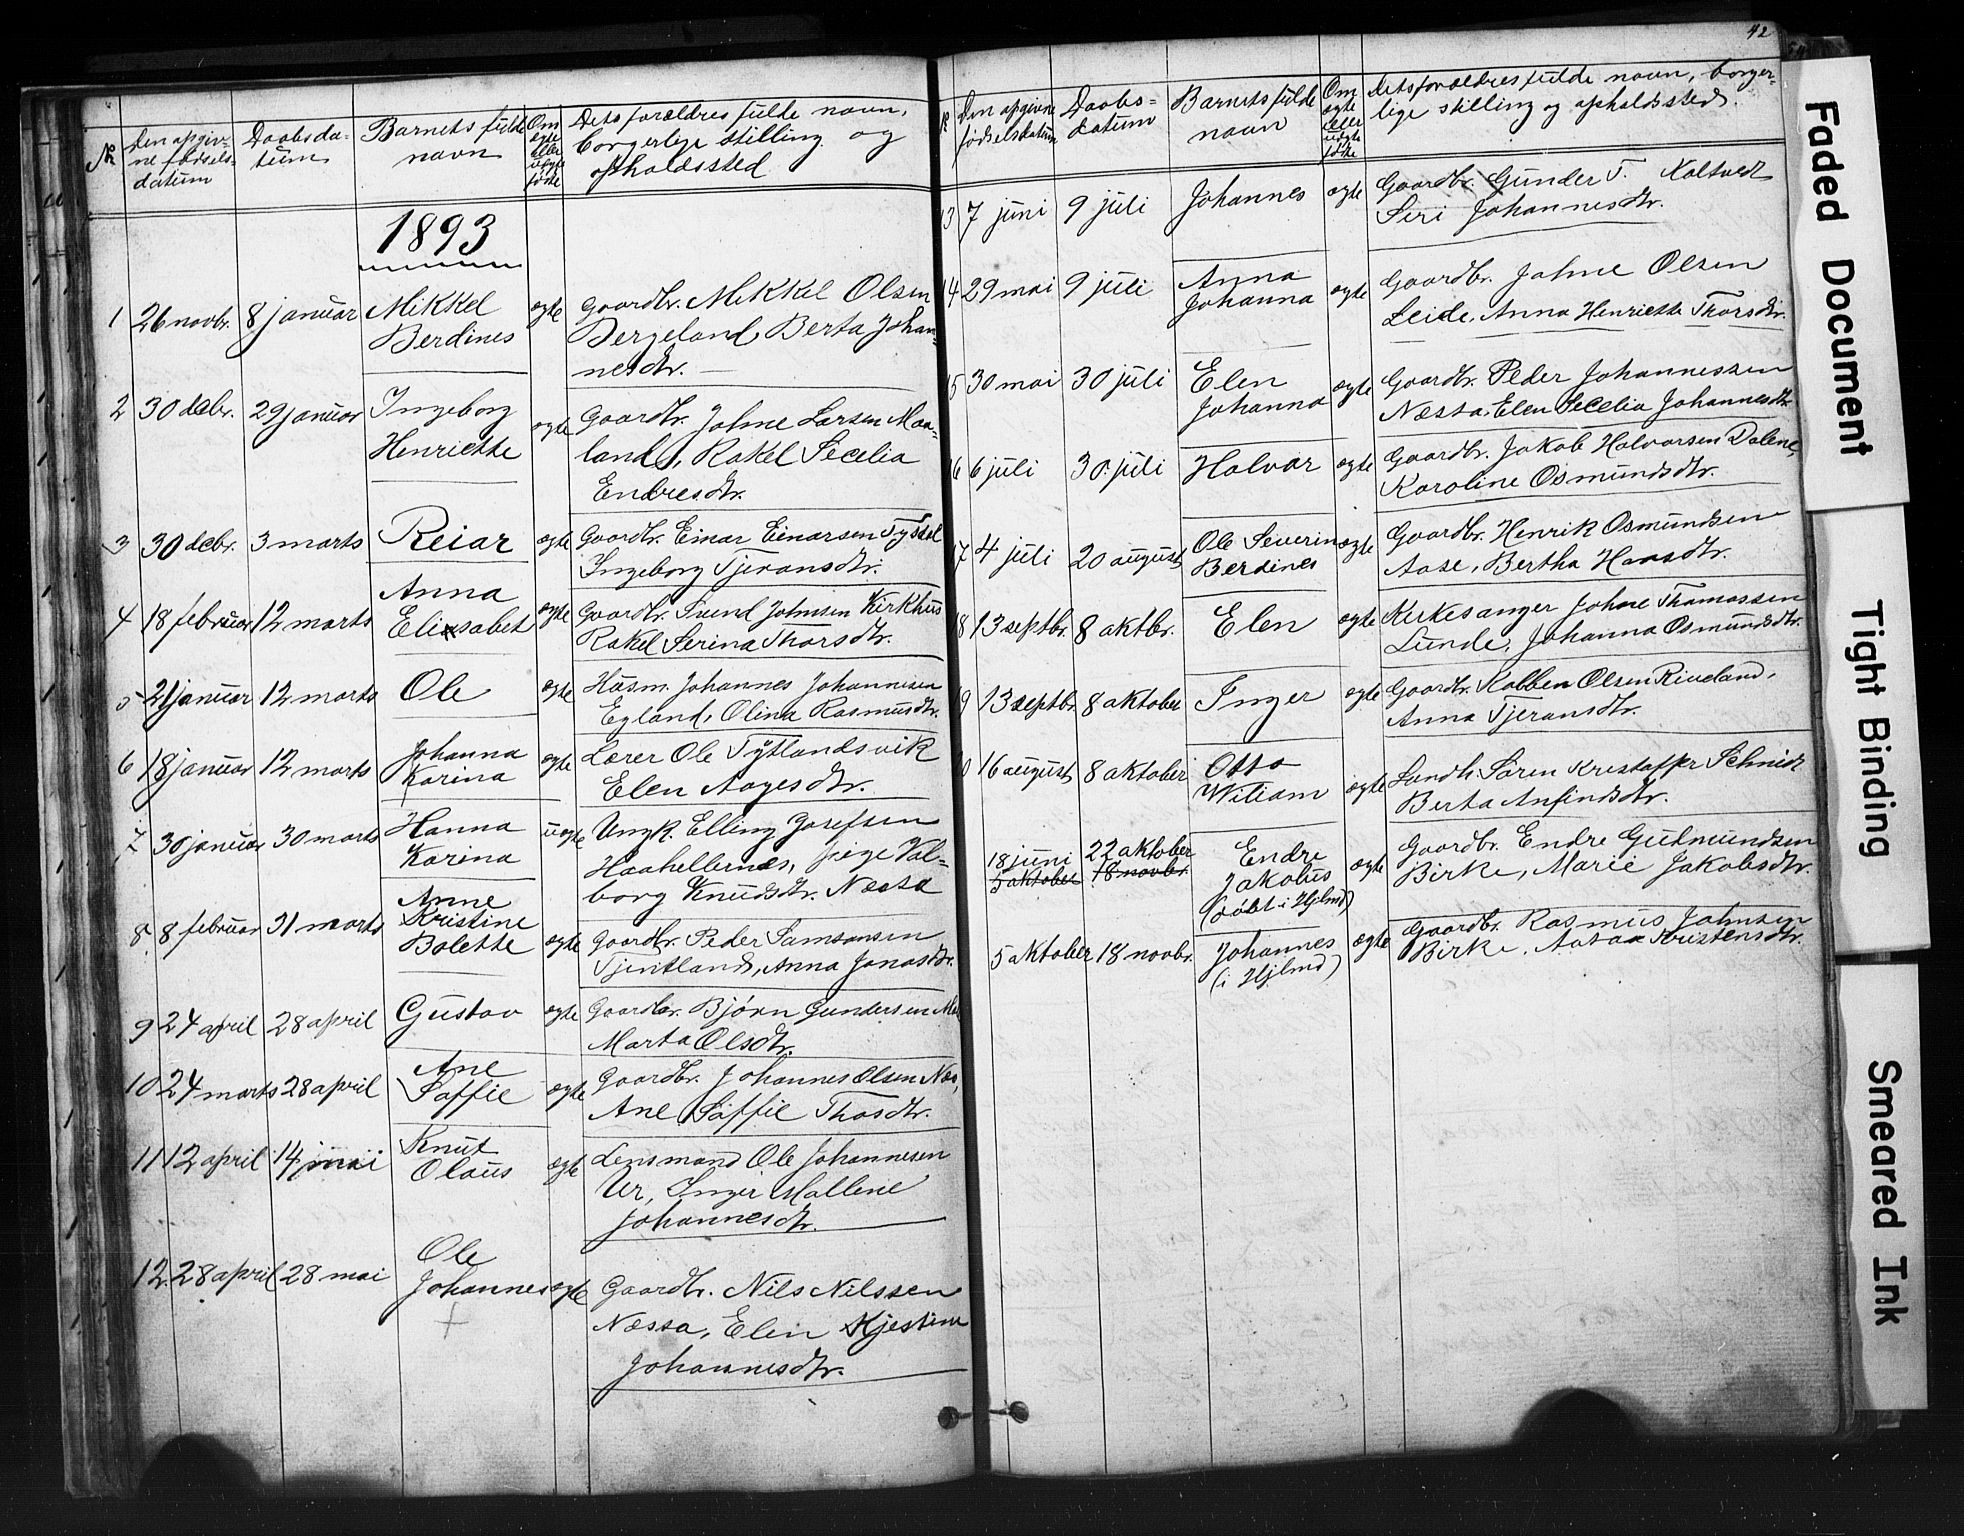 42
No
Den opgiv-
ne fødsels-
datum
Daabsda-
tum
Barnets fulde
navn
Om
ægte
eller
uægte
fødte
Dets forældres fulde navn,
borgerlige stilling og
opholdssted
1893
1 26 novbr. 8 januar Mikkel
Berdines
ægte
Gaardbr. Mikkel Olsen
Bergeland, Berta Johan-
nesdtr.
2 30 debr. 29 januar Ingeborg
Henriette
ægte
Gaardbr. Johne Larsen Maa-
land, Rakel Secelia
Endresdtr.
3 30 debr. 3 marts Reiar ægte
Gaardbr. Einar Einarsen Tysdal
Ingeborg Tjeransdtr.
4 18 februar 12 marts Anna
Elisabet
ægte
Gaardbr. Svend Johnsen Kirkhus
Rakel Serina Thorsdtr.
5 21 januar 12 marts Ole ægte
Husm. Johannes Johannesen
Egland, Olina Rasmusdtr.
6 18 januar 12 marts Johanna
Karina
ægte
Lærer Ole Tytlandsvik
Elen Aagesdtr.
7 30 januar 30 marts Hanna
Karina
uægte
Ungk. Elling Josefsen
Haahellernes, pige Val-
borg Knudsdtr. Næssa
8 8 februar 31 marts Anne
Kristine
Bolette
ægte
Gaardbr. Peder Samsonsen
Tjentland, Anna Jonasdtr.
9 24 april 28 april Gustav ægte
Gaardbr. Bjørn Gundersen
Marta Olsdtr.
10 24 marts 28 april Ane
Soffie
ægte
Gaardbr. Johannes Olsen Næs,
Ane Soffie Thosdtr.
11 12 april 14 mai Knut
Olaus
ægte
Lensmand Ole Johannesen
Ur, Inger Mallene
Johannesdtr.
12 28 april 28 mai Ole
Johannes
ægte
Gaardbr. Nils Nilssen
Næssa, Elen Kjestine
Johannesdtr.
No
Den opgivne
fødselsdatum
Daabs-
datum
Barnets fulde
navn
Om
ægte
eller
uægte
fødte
Dets forældres fulde navn, borger-
lige stilling og opholdssted.
13 7 juni 9 juli Johannes ægte
Gaardbr. Gunder T. Kaltvedt
Seri Johannesdtr.
14 29 mai 9 juli Anna
Johanna
ægte
Gaardbr. Johne Olsen
Leide, Anna Henriette Thorsdtr.
15 30 mai 30 juli Elen
Johanna
ægte
Gaardbr. Peder Johannessen
Næssa, Elen Secelia Johannesdtr.
16 6 juli 30 juli Halvar ægte
Gaardbr. Jakob Halvorsen Dalene,
Karoline Osmundsdtr.
17 4 juli 20 august Ole Severin
Berdines
ægte
Gaardbr. Henrik Osmundsen
Aase, Bertha Hansdtr.
18 13 septbr. 8 oktbr. Elen ægte
Kirkesanger Johne Thomassen
Lunde, Johanna Osmundsdtr.
19 13 septbr. 8 oktober Inger ægte
Gaardbr. Kolben Olsen Riveland,
Anna Tjeransdtr.
20 16 august 8 oktober Otto
Wiliam
ægte
Landh. Søren Kristoffer Schmidt
Berta Anfindsdtr.
18 juni
5 oktober
22 oktober
18 novbr.
Endre
Jakobus
(døbt i Hjlmd)
ægte
Gaardbr. Endre Gutmundsen
Birke, Marie Jakobsdtr.
5 oktober 18 novbr. Johannes
(i Hjlmd)
ægte
Gaardbr. Rasmus Johnsen
Birke, Aasa Kristensdtr.
Faded Document
Tight Binding
Smeared Ink